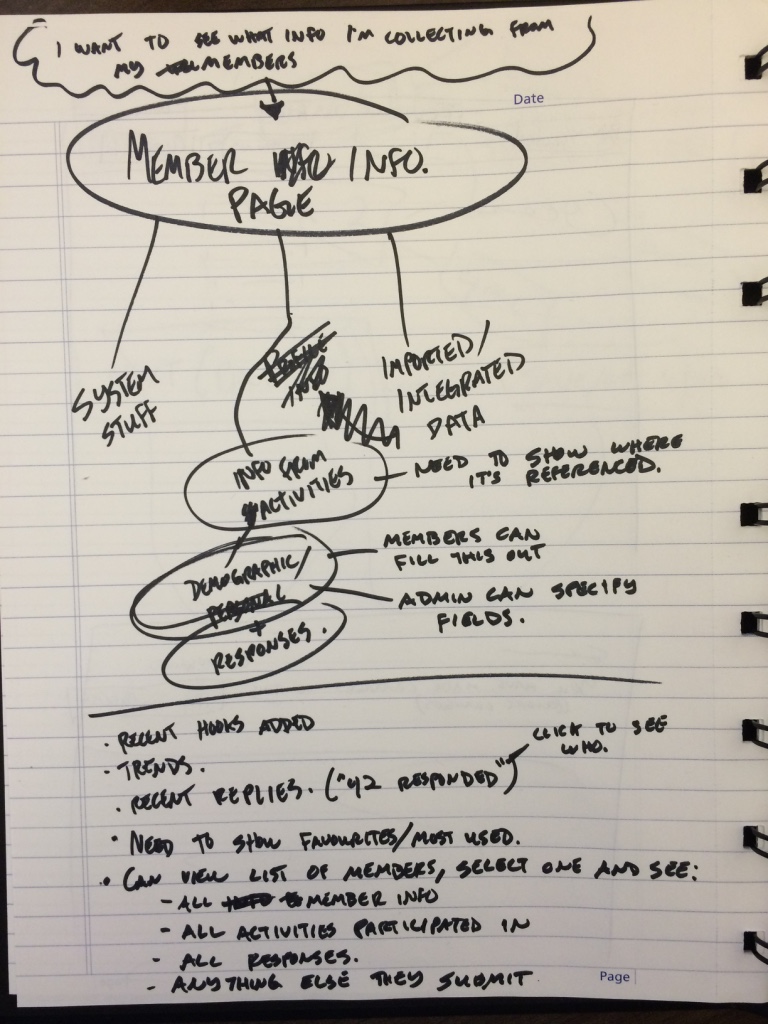 I WANT TO SEE WHAT INFO I'M COLLECTING FROM
MY MEMBERS
Date
MEMBER INFO.
PAGE
SYSTEM
STUFF
IMPORTED/
INTEGRATED
DATA
INFO FROM
ACTIVITIES
NEED TO SHOW WHERE
IT'S REFERENCED.
DEMOGRAPHIC/
PERSONAL
+
RESPONSES.
MEMBERS CAN
FILL THIS OUT
ADMIN CAN SPECIFY
FIELDS.
· RECENT HOOKS ADDED
· TRENDS.
· RECENT REPLIES. ("42 RESPONDED")
CLICK TO SEE
WHO.
· NEED TO SHOW FAVOURITES/MOST USED.
· CAN VIEW LIST OF MEMBERS, SELECT ONE AND SEE:
- ALL MEMBER INFO
- ALL ACTIVITIES PARTICIPATED IN
- ALL RESPONSES.
- ANYTHING ELSE THEY SUBMIT
Page